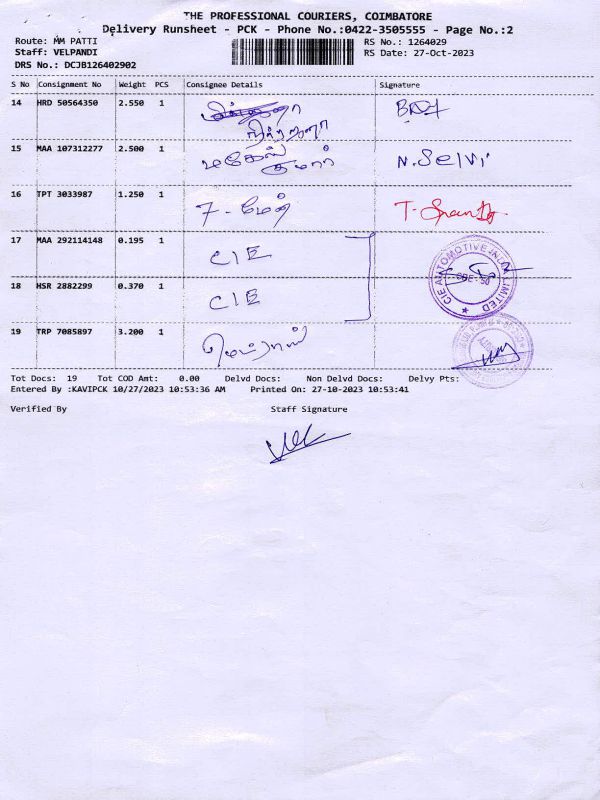 THE PROFESSIONAL COURIERS, COIMBATORE
Delivery Runsheet - PCK - Phone No.:0422-3505555 - Page No.:2
Route: MM PATTI RS No.: 1264029
Staff: VELPANDI RS Date: 27-Oct-2023
DRS No.: DCJB126402902
S No Consignment No Weight PCS Consignee Details Signature
14 HRD 50564350 2.550 1
15 MAA 107312277 2.500 1 மகேஷ் N. Selvi
குமார்
16 TPT 3033987 1.250 1
17 MAA 292114148 0.195 1 CIE
CIE AUTOMOTIVE INDIA LIMITED
18 HSR 2882299 0.370 1 CIE
19 TRP 7085897 3.200 1
Tot Docs: 19 Tot COD Amt: 0.00 Delvd Docs: Non Delvd Docs: Delvy Pts:
Entered By :KAVIPCK 10/27/2023 10:53:36 AM Printed On: 27-10-2023 10:53:41
Verified By Staff Signature